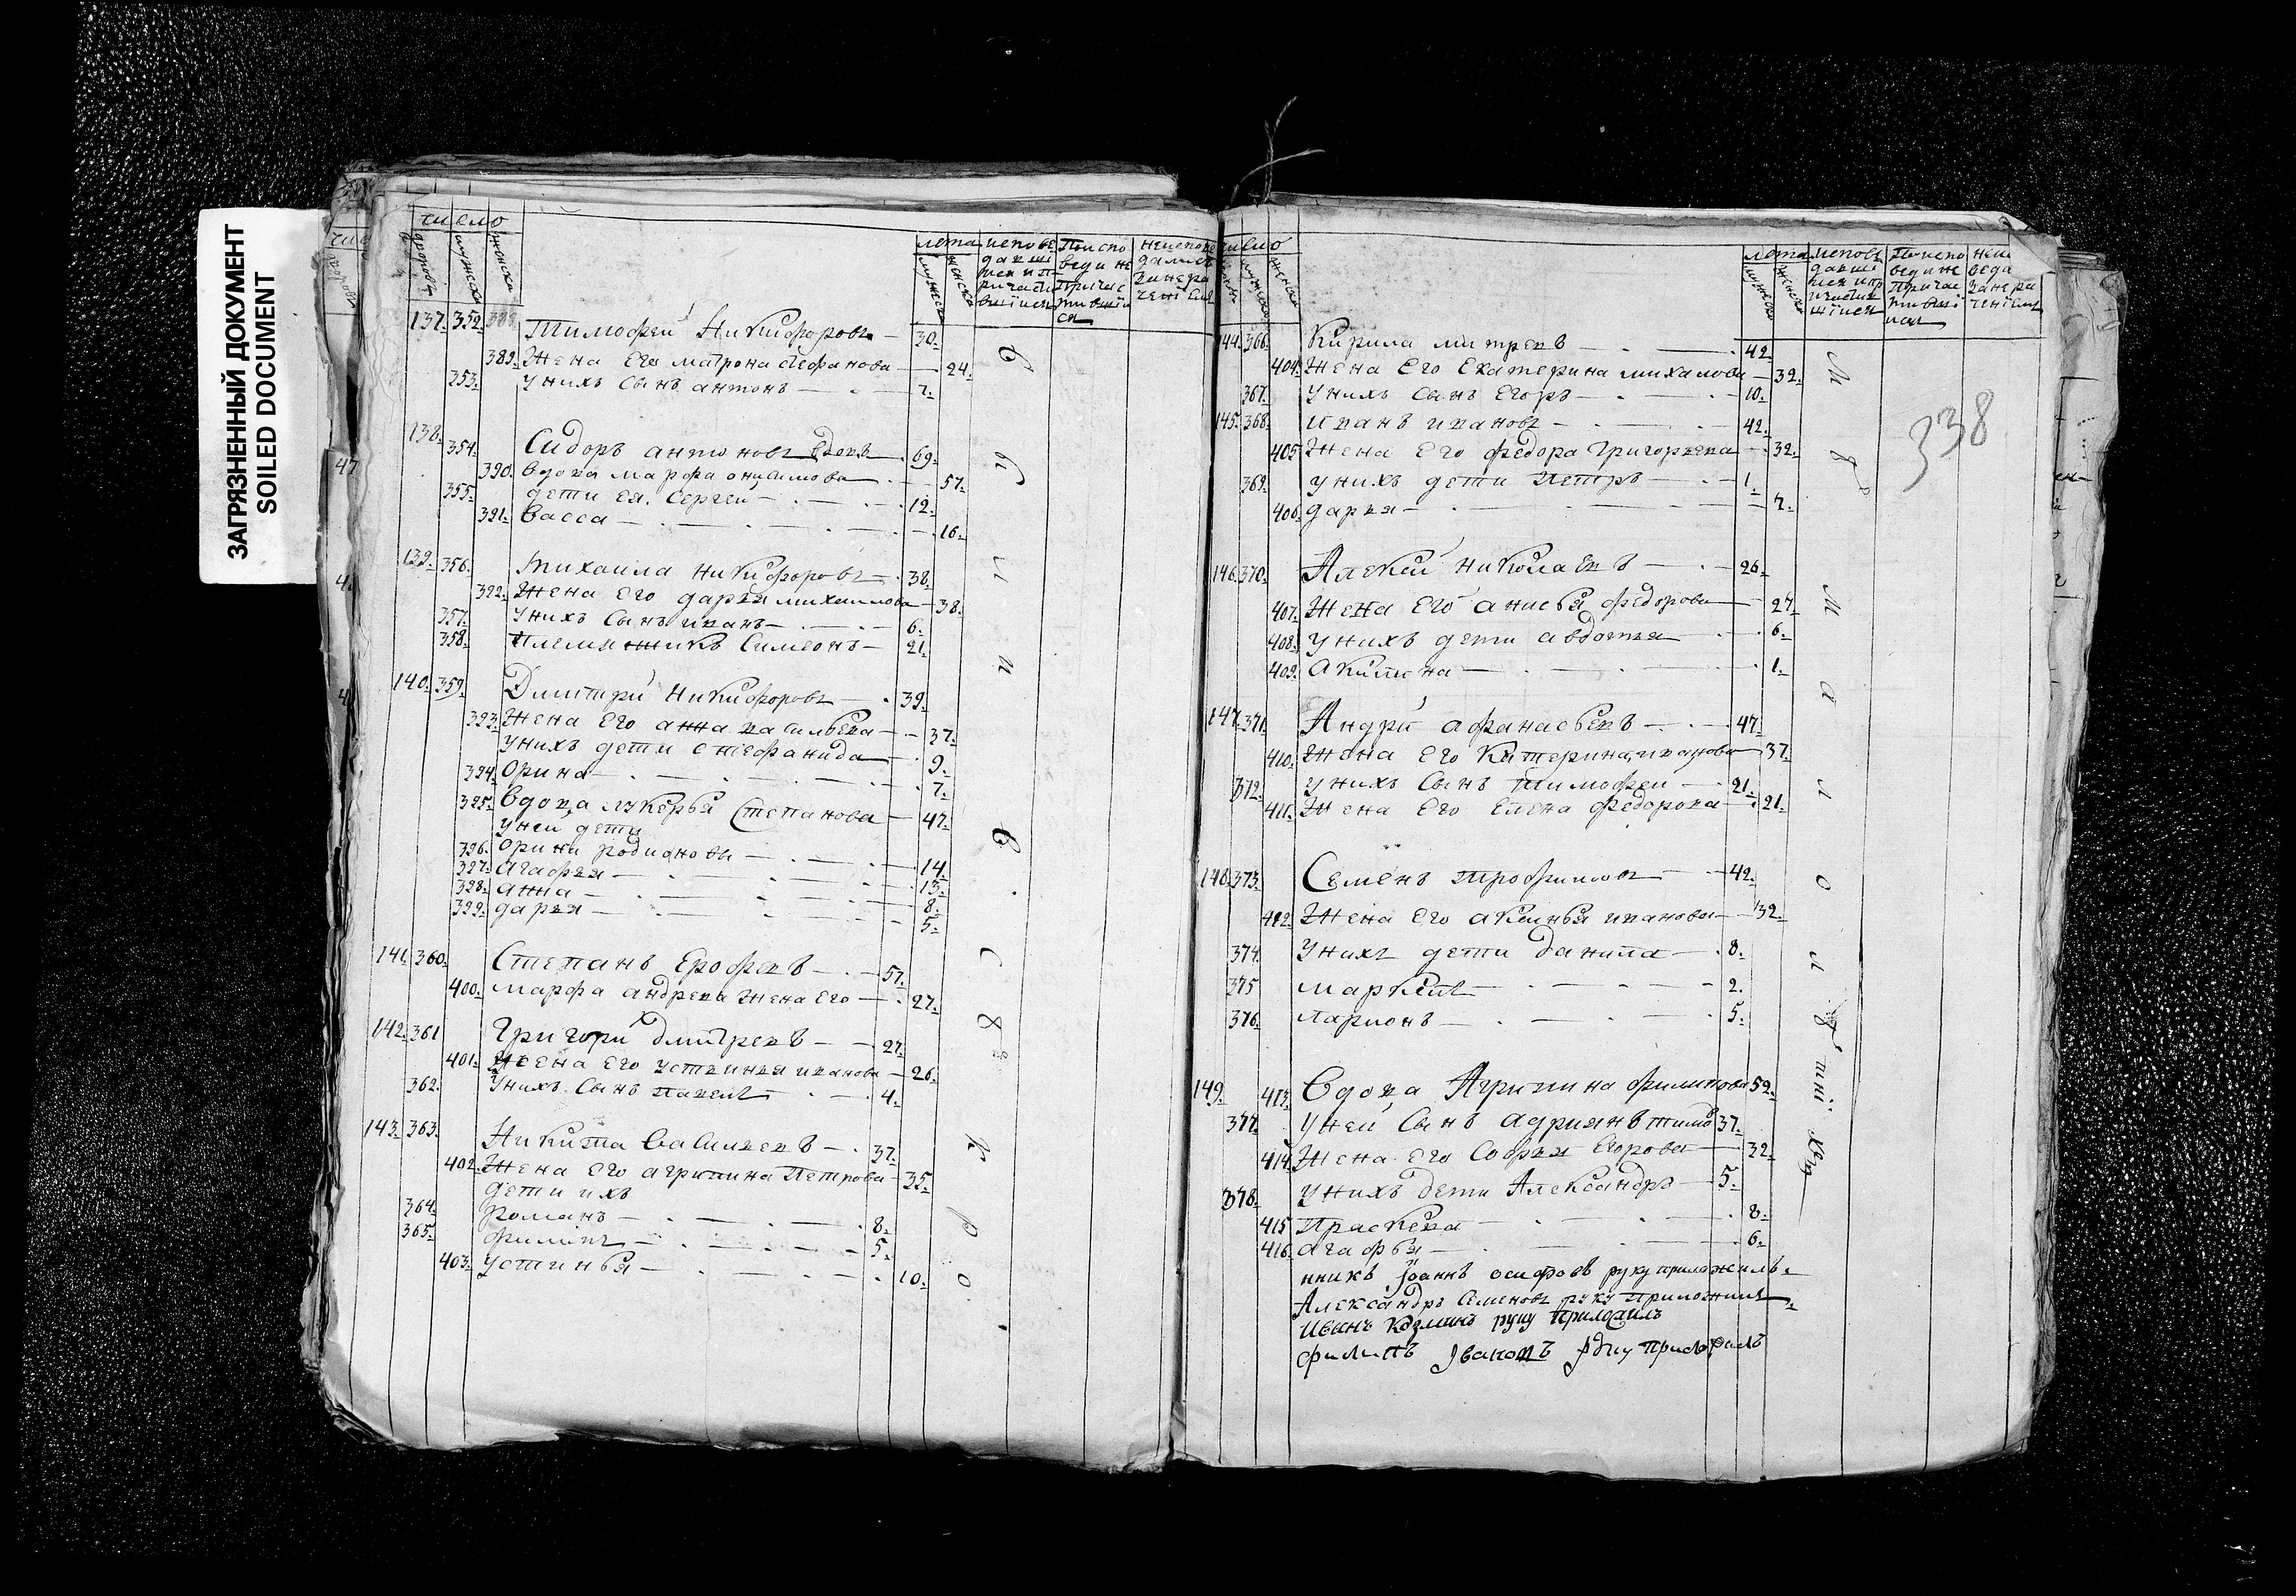 ЗАГРЯЗНЕННЫЙ ДОКУМЕНТ
SOILED DOCUMENT
число
лета
137. 352. Тимофей Никифоровъ 30.
389. Жена Его матрона стефанова 24.
353. у нихъ Сынъ антонъ 7.
138. 354. Сидоръ антоновъ вдовъ 69.
390. вдова марфа онисимова 57.
355. дети ея. Сергей 12.
391. васса 16.
139. 356. Михаила Никифоровъ 38.
392. Жена Его дарья михаилова 38.
357. у нихъ Сынъ иванъ 6.
358. племянникъ Симеонъ 21
140. 359. Дмитрй Никифоровъ 39.
393. Жена Его анна васильева 37.
у нихъ дети стефанида 9.
394. Орина 7.
395. вдова лукерья Степанова 47.
у ней дети
396. Орина родионовы 14.
397. агафья 13.
398. анна 8.
399. дарья 5.
141. 360. Степанъ Ерофеевъ 57.
400. марфа андреева Жена Его 27.
142. 361 Григорй дмитревъ 27.
401. Жена Его устинья иванова 26.
362. у нихъ Сынъ павелъ 4.
143. 363. Никита Васильевъ 37.
402. Жена Его агрипина Петрова 35.
дети ихъ
364. романъ 8.
365. филипъ 5.
403. устинья 10.
число
лета
338
144. 366. Кирила митревъ 42.
404. Жена Его Екатерина михалова 32.
367. у нихъ Сынъ Егоръ 10.
145. 368. иванъ ивановъ 42.
405 Жена Его федора Григорьева 32.
369. у нихъ дети Петръ 1.
406. дарья 7.
146. 370. Алексй николаевъ 26.
407. Жена Его анисья федорова 27.
408. у нихъ дети авдотья 6.
409. акилина 1.
147. 371. Андрй афанасьевъ 47.
410. Жена Его Катерина иванова 37.
372. у нихъ Сынъ тимофеи 21.
411. Жена Его Елена федорова 21.
148. 373. Семенъ трофимовъ 42.
412. Жена Его аксинья иванова 32.
374. у нихъ дети данила 8.
375 маркелъ 2.
376. ларионъ 5.
149. 413. Вдова Агрипина филипова 59.
377. у ней Сынъ адриянъ тимо 37.
414. Жена Его Софья Егорова 32.
378. у нихъ дети Александръ 5.
415 Праскева 8.
416. агафья 6.
нникъ Iоаннъ осифовъ руку приложилъ.
Александръ Семеновъ руку Приложилъ
Иванъ Козминъ руку Приложилъ
филипъ Iвановъ руку приложилъ